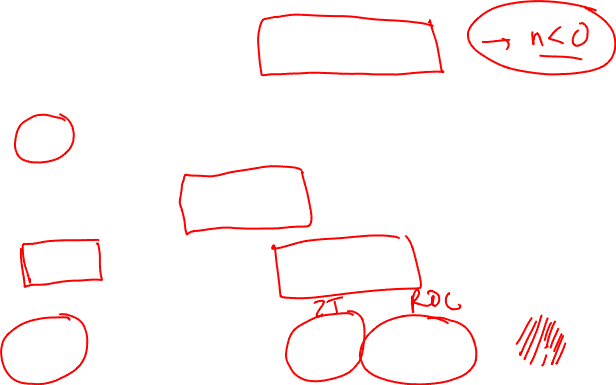 → n<0
ZT ROC